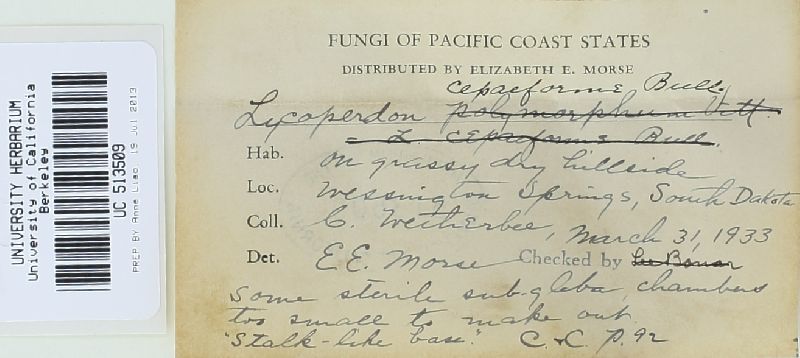 UNIVERSITY HERBARIUM
University of California
Berkeley
UC 513509
PREP BY Anne Liao 19 Jul 2013
FUNGI OF PACIFIC COAST STATES
DISTRIBUTED BY ELIZABETH E. MORSE
cepaeforme Bull.
Lycoperdon polymorphum Vitt.
= L. cepaeforme Bull.
Hab. On grassy dry hillside
Loc. Wessington Springs, South Dakota
Coll. C. Wetherbee, March 31, 1933
Det. E.E. Morse Checked by Lee Bonar
Some sterile sub-gleba, chambers
too small to make out
"Stalk-like base." C. & C. P. 92